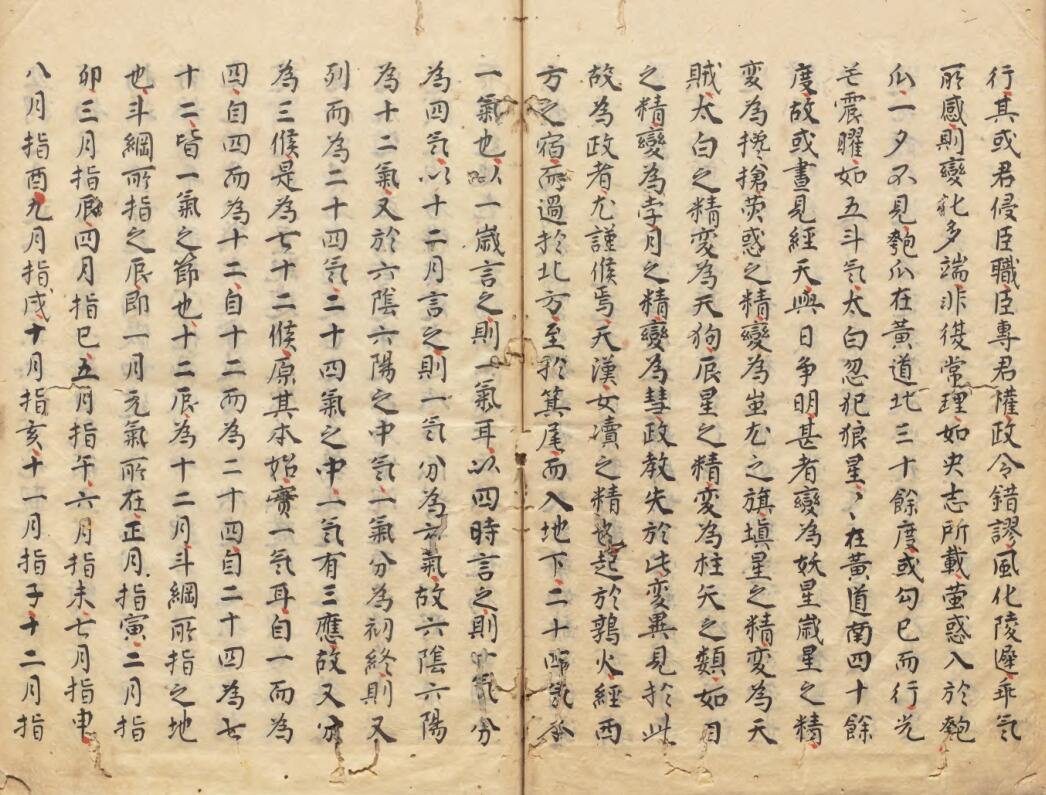 行其或君侵臣職臣專君權政令錯謬風化陵遲乖气
所感則變化多端非復常理如史志所載熒惑入於匏
瓜一夕不見匏瓜在黃道北三十餘度或勾巳而行光
芒震曜如五斗气太白忽犯狼星〻在黃道南四十餘
度故或晝見經天與日争明甚者變為妖星歳星之精
変為攙搶熒惑之精變為蚩尤之旗塡星之精変為天
賊太白之精変為天狗辰星之精変為枉矢之類如日
之精變為孛月之精變為彗政教失於此変異見於此
故為政者尤謹候焉天漢女漬之精也起於鶉火經西
方之宿而過於北方至於箕尾而入地下二十四気本
一氣也以一歳言之則一氣耳以四時言之則一氣分
為四気以十二月言之則一気分為六氣故六隂六陽
為十二氣又於六隂六陽之中気一氣分為初終則又
列而為二十四気二十四氣之中一気有三應故又分
為三候是為七十二候原其本始實一気耳自一而為
四自四而為十二自十二而為二十四自二十四為七
十二皆一氣之節也十二辰為十二月斗綱所指之地
也斗綱所指之辰即一月元氣所在正月指寅二月指
卯三月指辰四月指巳五月指午六月指未七月指申
八月指酉九月指戌十月指亥十一月指子十二月指